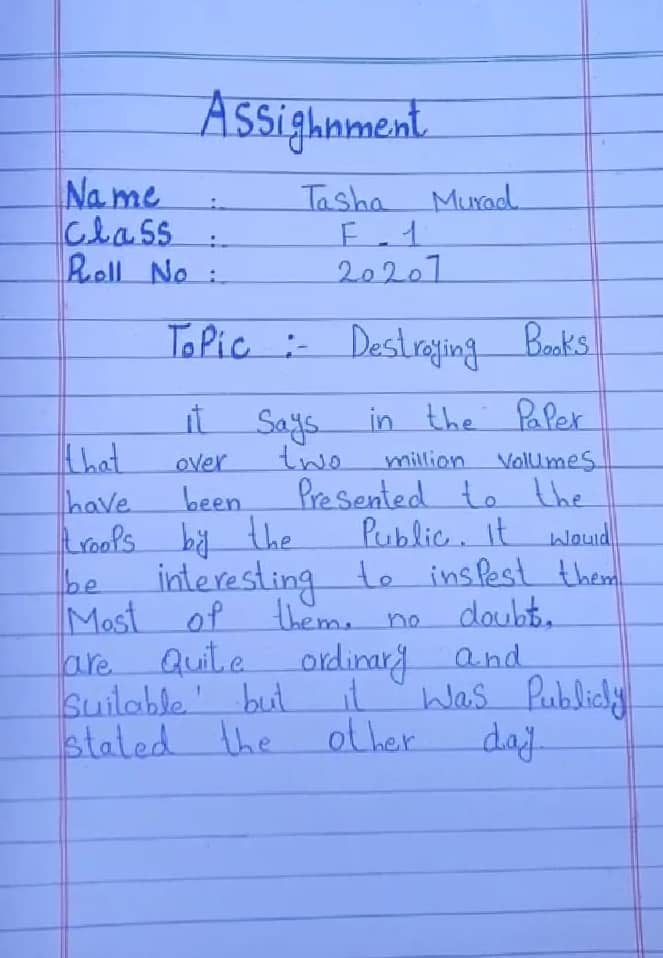 Assighnment
Name :. Tasha Murad
Class :. F - 1
Roll No : 20207
Topic :- Destroying Books
it says in the Paper
that over two million volumes
have been Presented to the
troops by the Public. It would
be interesting to inspest them
Most of them. no doubt.
are Quite ordinary and
suitable' but it was Publicly
stated the other day.